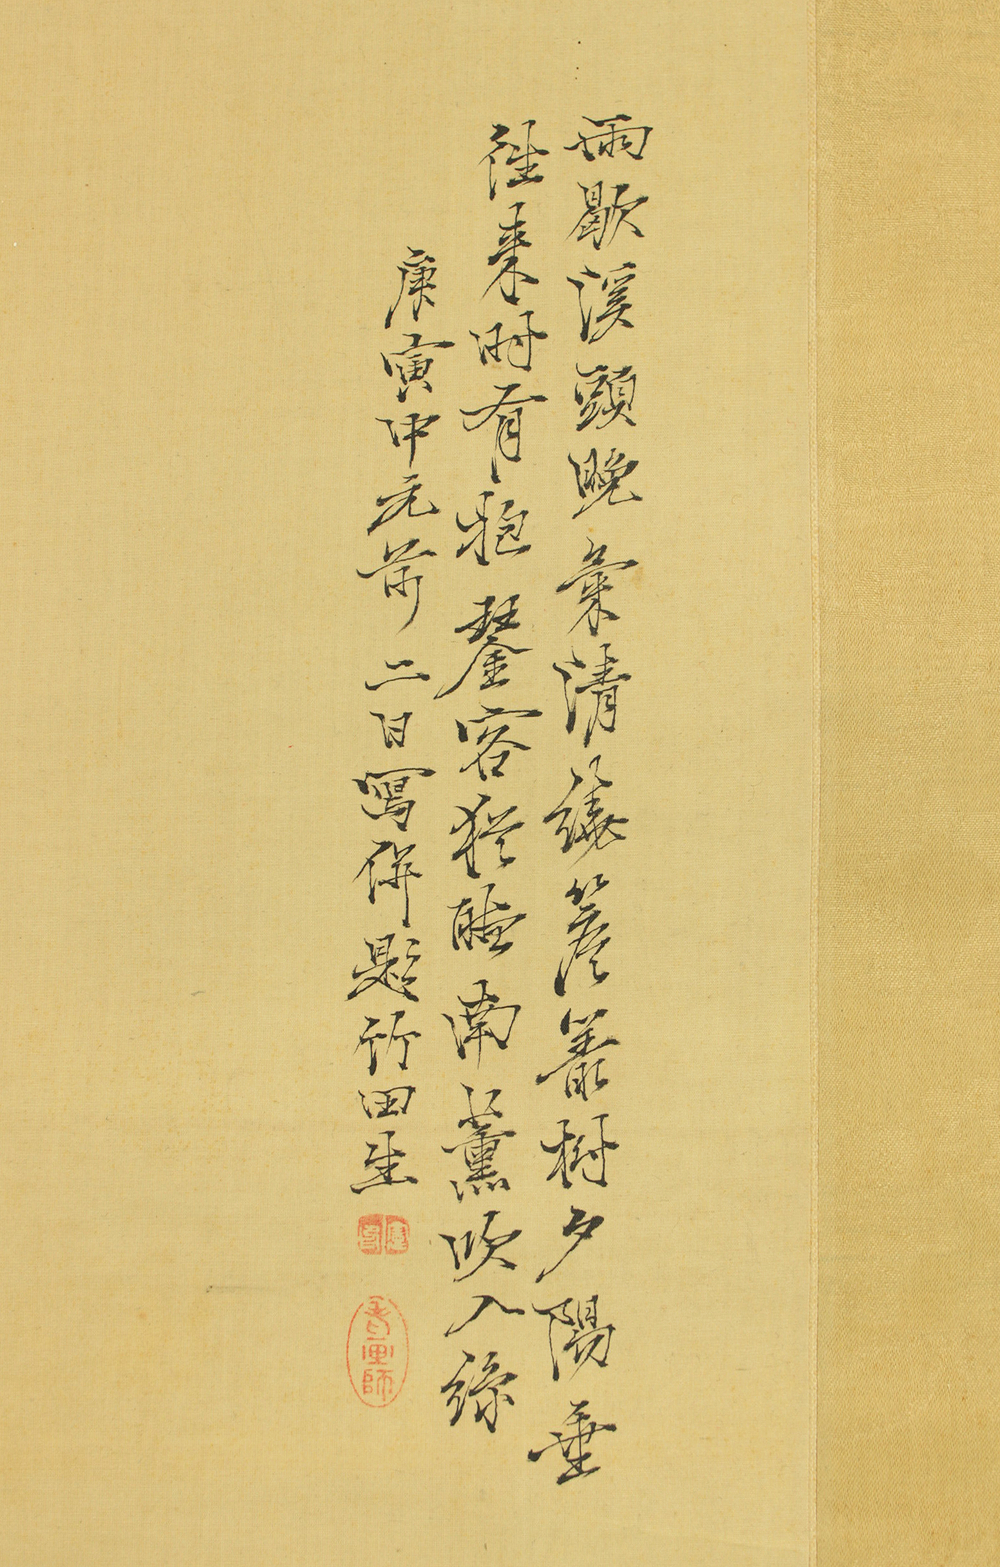 雨歇溪頭晚氣清繞簷叢樹夕陽垂
往來時有抱琴客猶聽南薰吹入絲
庚寅中元前二日寫併題竹田生
香画師